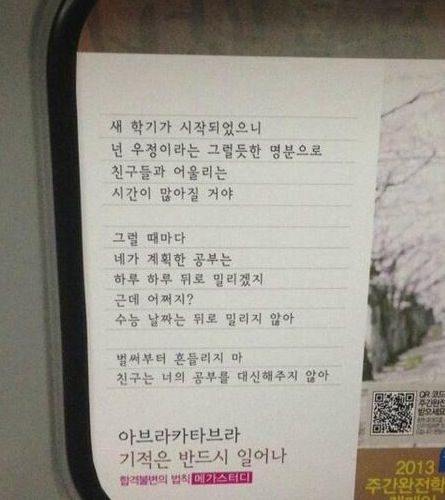 새 학기가 시작되었으니
넌 우정이라는 그럴듯한 명분으로
친구들과 어울리는
시간이 많아질 거야
그럴 때마다
네가 계획한 공부는
하루 하루 뒤로 밀리겠지
근데 어쩌지?
수능 날짜는 뒤로 밀리지 않아
벌써부터 흔들리지 마
친구는 너의 공부를 대신해주지 않아
아브라카타브라
기적은 반드시 일어나
합격불변의 법칙 메가스터디
QR 코드
주간완전
받으세요
2013
주간완전학